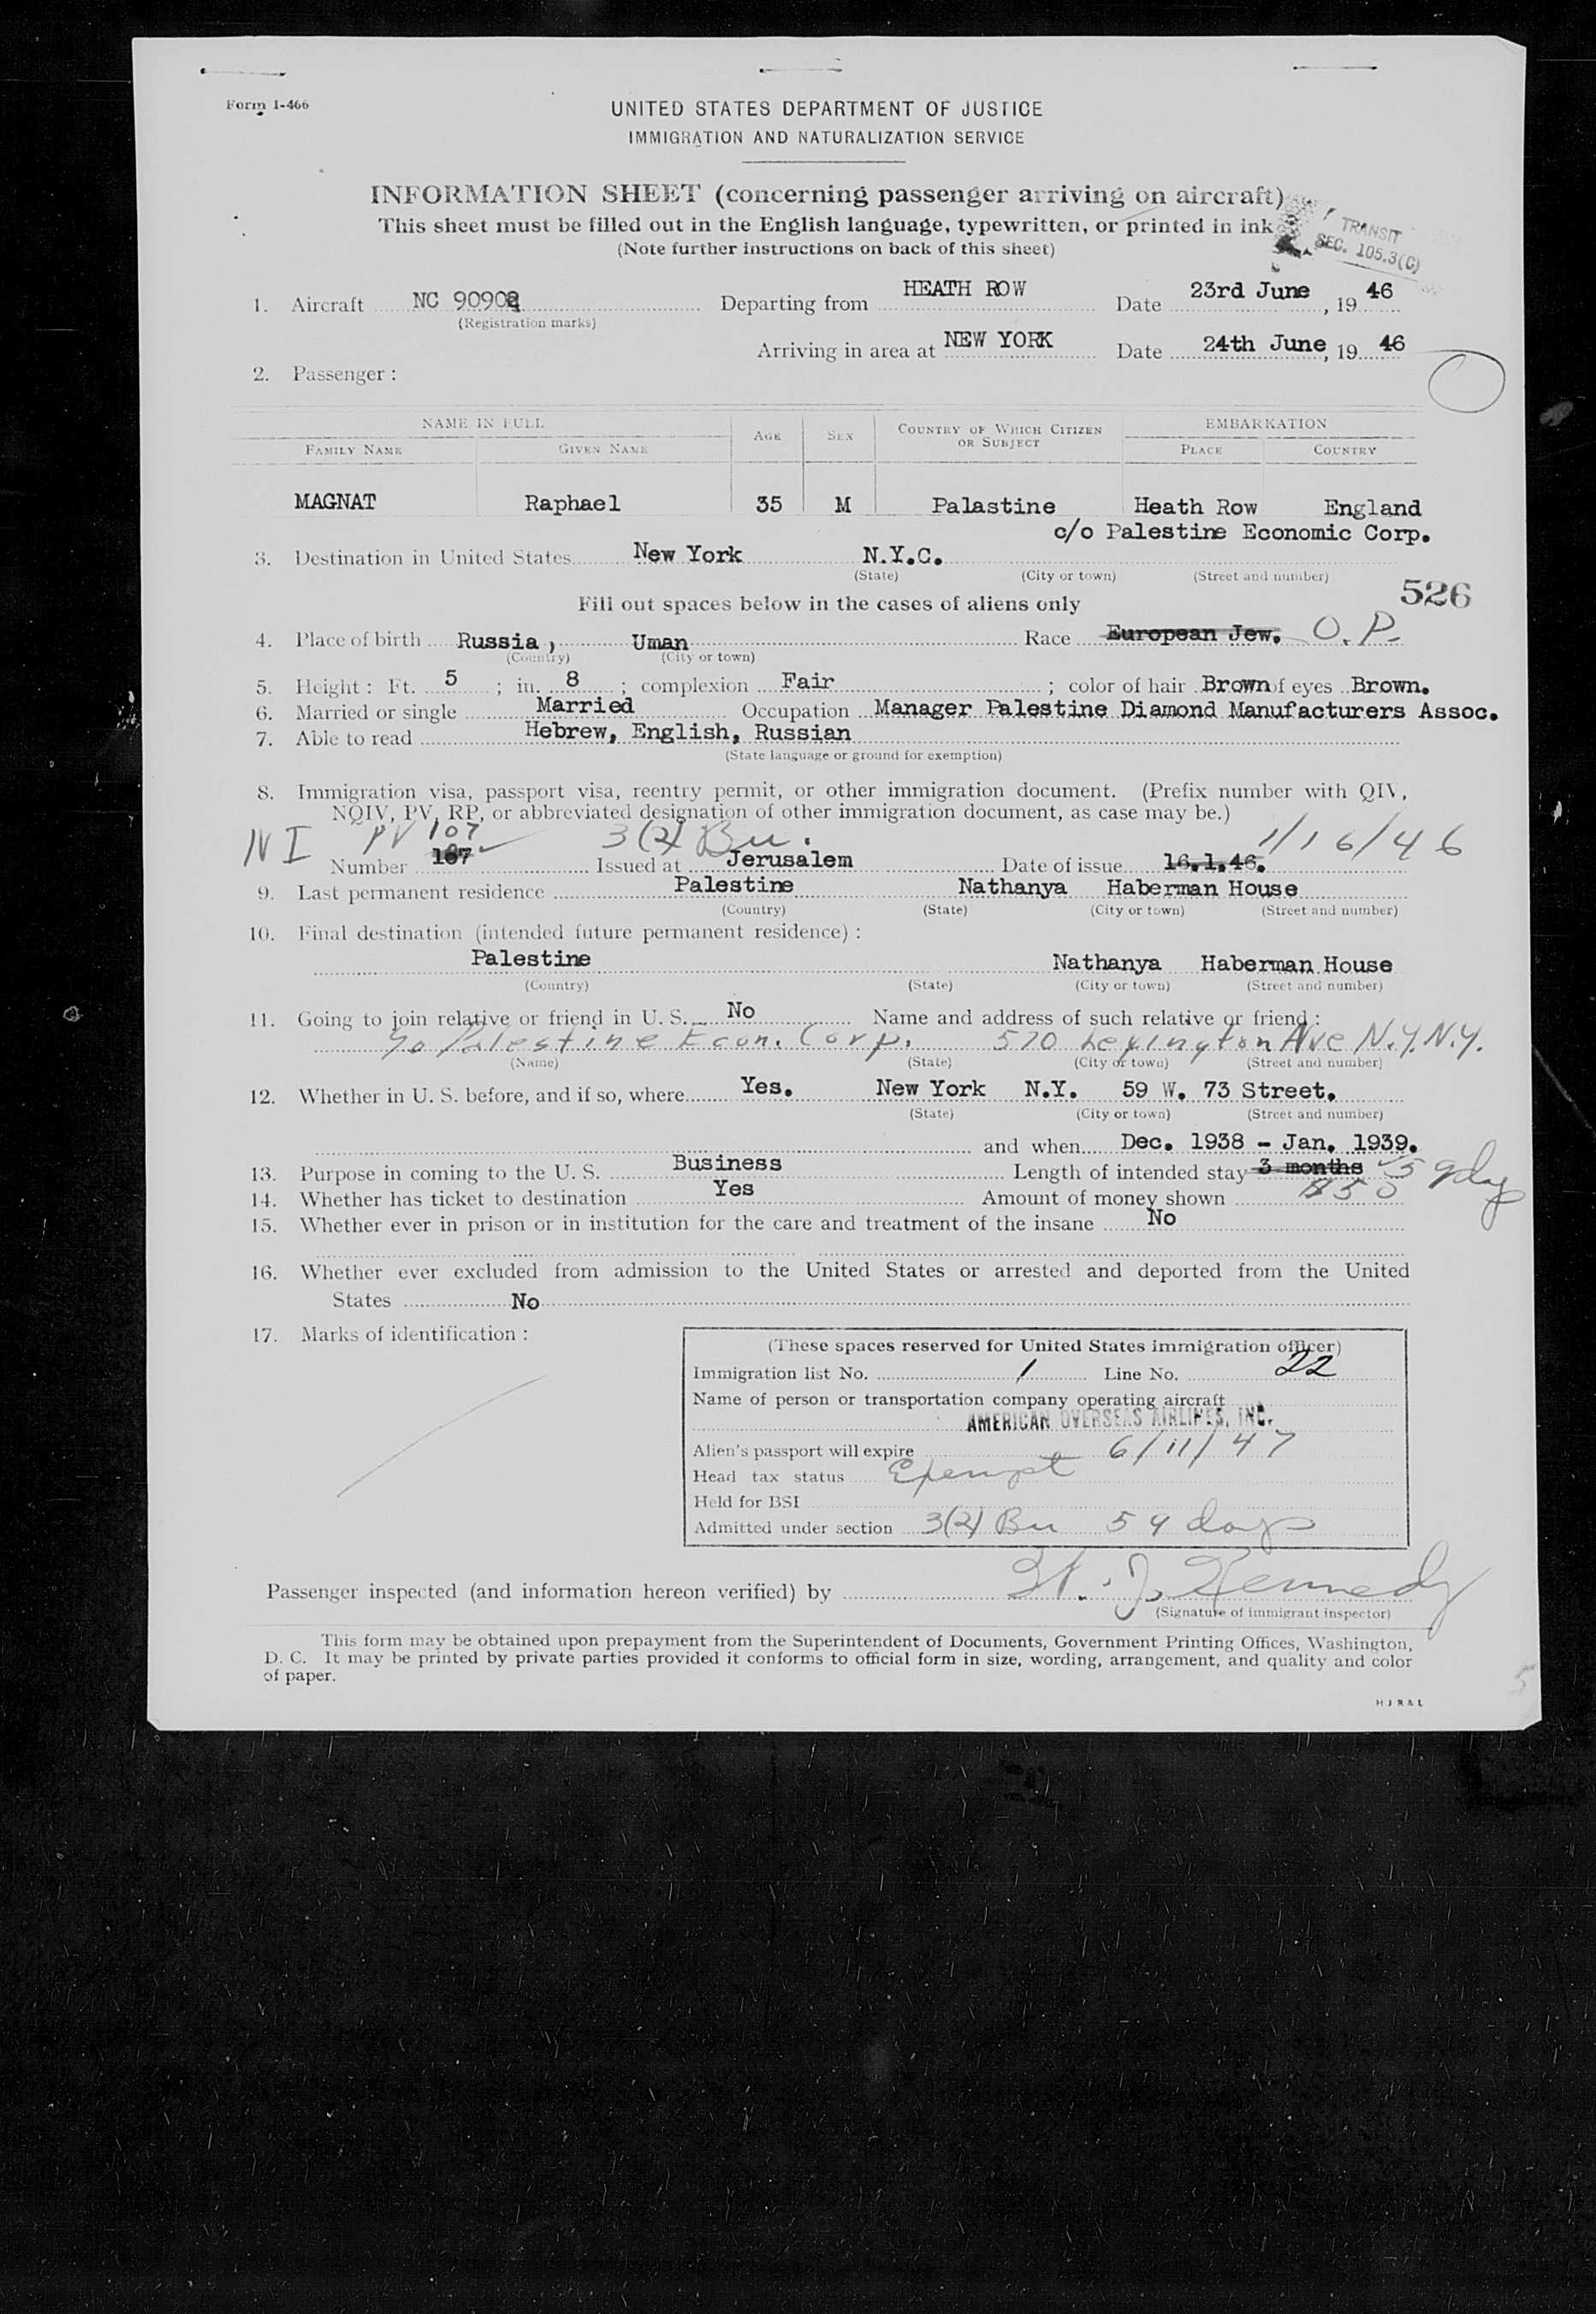 Form I-466
UNITED STATES DEPARTMENT OF JUSTICE
IMMIGRATION AND NATURALIZATION SERVICE
INFORMATION SHEET (concerning passenger arriving on aircraft)
This sheet must be filled out in the English language, typewritten, or printed in ink
(Note further instructions on back of this sheet)
TRANSIT
SEC. 105.3(C)
1. Aircraft NC 9090 Departing from HEATH ROW Date 23rd June, 19 46
(Registration marks)
Arriving in area at NEW YORK Date 24th June, 19 46
2. Passenger:
NAME IN FULL AGE SEX COUNTRY OF WHICH CITIZEN OR SUBJECT EMBARKATION
FAMILY NAME GIVEN NAME PLACE COUNTRY
MAGNAT Raphael 35 M Palastine Heath Row England
c/o Palestine Economic Corp.
3. Destination in United States New York N.Y.C.
(State) (City or town) (Street and number)
526
Fill out spaces below in the cases of aliens only
4. Place of birth Russia, Uman Race European Jew. O.P.
(Country) (City or town)
5. Height: Ft. 5; in. 8; complexion Fair; color of hair Brown of eyes Brown.
6. Married or single Married Occupation Manager Palestine Diamond Manufacturers Assoc.
7. Able to read Hebrew, English, Russian
(State language or ground for exemption)
8. Immigration visa, passport visa, reentry permit, or other immigration document. (Prefix number with QIV,
NQIV, PV, RP, or abbreviated designation of other immigration document, as case may be.)
NI PV 107 3(2) Bu. 1/16/46
Number 167 Issued at Jerusalem Date of issue 16.1.46.
9. Last permanent residence Palestine Nathanya Haberman House
(Country) (State) (City or town) (Street and number)
10. Final destination (intended future permanent residence):
Palestine Nathanya Haberman House
(Country) (State) (City or town) (Street and number)
11. Going to join relative or friend in U. S. No Name and address of such relative or friend:
c/o Palestine Econ. Corp. 570 Lexington Ave N.Y. N.Y.
(Name) (State) (City or town) (Street and number)
12. Whether in U. S. before, and if so, where Yes. New York N.Y. 59 W. 73 Street.
(State) (City or town) (Street and number)
and when Dec. 1938 - Jan. 1939.
13. Purpose in coming to the U. S. Business Length of intended stay 3 months 59 days
14. Whether has ticket to destination Yes Amount of money shown $50
15. Whether ever in prison or in institution for the care and treatment of the insane No
16. Whether ever excluded from admission to the United States or arrested and deported from the United
States No
17. Marks of identification:
(These spaces reserved for United States immigration officer)
Immigration list No. 1 Line No. 22
Name of person or transportation company operating aircraft
AMERICAN OVERSEAS AIRLINES, INC.
Alien's passport will expire 6/11/47
Head tax status Exempt
Held for BSI
Admitted under section 3(2) Bu 59 days
Passenger inspected (and information hereon verified) by J. Kennedy
(Signature of immigrant inspector)
This form may be obtained upon prepayment from the Superintendent of Documents, Government Printing Offices, Washington,
D. C. It may be printed by private parties provided it conforms to official form in size, wording, arrangement, and quality and color
of paper.
HJR&L